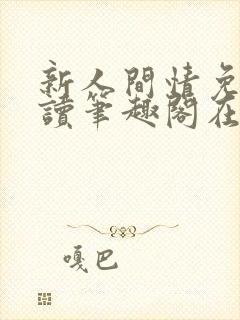 新人間情免
讀筆趣閣在
嘎巴